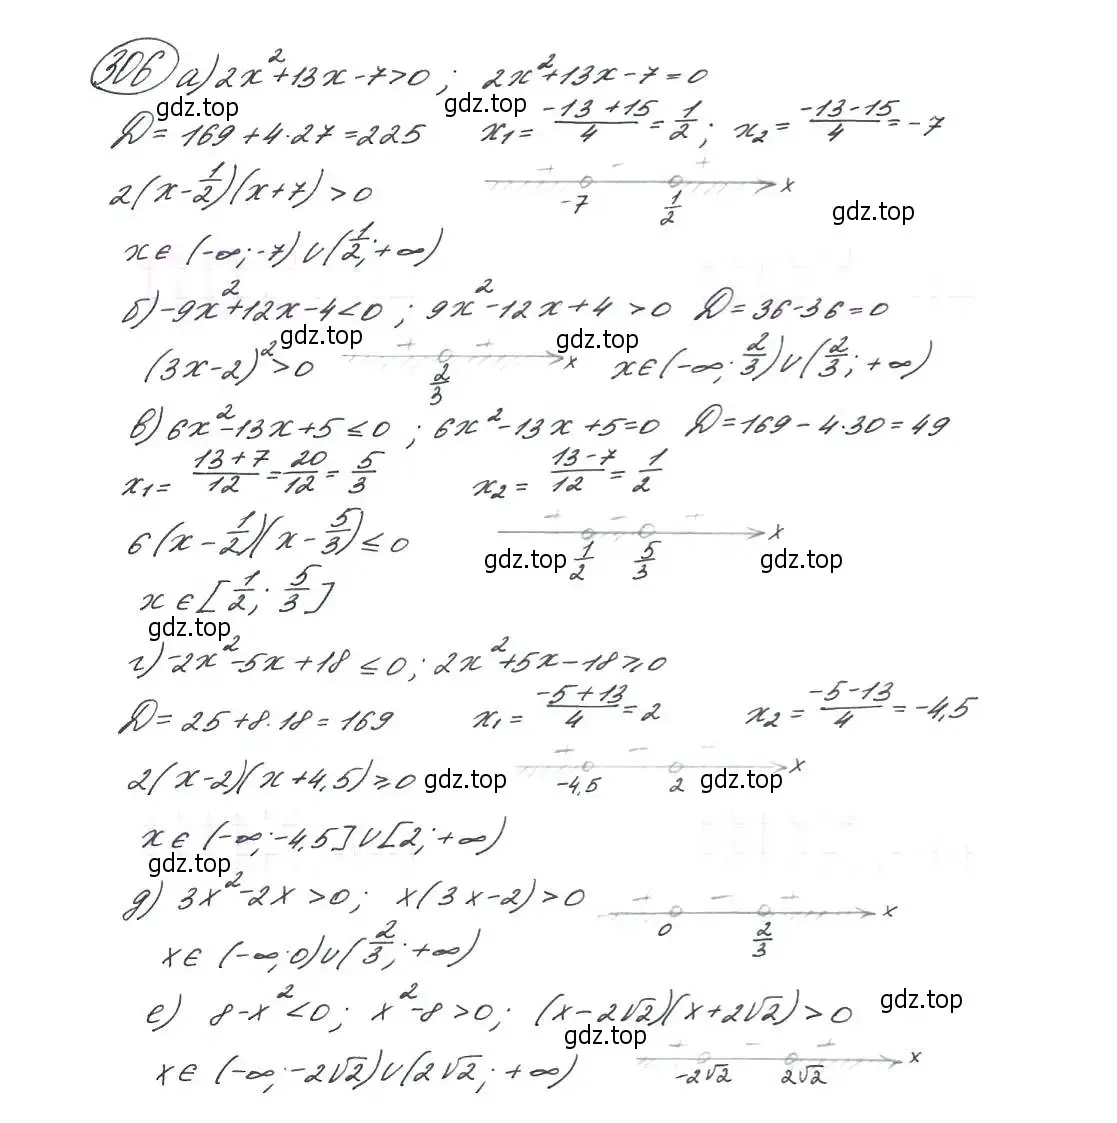 306 а) 2x²+13x-7>0; 2x²+13x-7=0
gdz.top gdz.top
D=169+4·27=225 x₁=(-13+15)/4=1/2; x₂=(-13-15)/4=-7
2(x-1/2)(x+7)>0 + - + x
-7 1/2 gdz.top
x∈(-∞;-7)∪(1/2;+∞)
б) -9x²+12x-4<0; 9x²-12x+4>0 D=36-36=0
gdz.top gdz.top
(3x-2)²>0 + + x x∈(-∞;2/3)∪(2/3;+∞)
2/3
в) 6x²-13x+5≤0; 6x²-13x+5=0 D=169-4·30=49
x₁=(13+7)/12=20/12=5/3 x₂=(13-7)/12=1/2
6(x-1/2)(x-5/3)≤0 + - + x
gdz.top 1/2 5/3 gdz.top
x∈[1/2;5/3]
gdz.top
г) -2x²-5x+18≤0; 2x²+5x-18≥0
D=25+8·18=169 x₁=(-5+13)/4=2 x₂=(-5-13)/4=-4,5
2(x-2)(x+4,5)≥0 gdz.top + - + x
-4,5 2 gdz.top
x∈(-∞;-4,5]∪[2;+∞)
gdz.top
д) 3x²-2x>0; x(3x-2)>0 + - + x
0 2/3
x∈(-∞;0)∪(2/3;+∞)
е) 8-x²<0; x²-8>0; (x-2√2)(x+2√2)>0 gdz.top
gdz.top
x∈(-∞;-2√2)∪(2√2;+∞) + - + x
-2√2 2√2